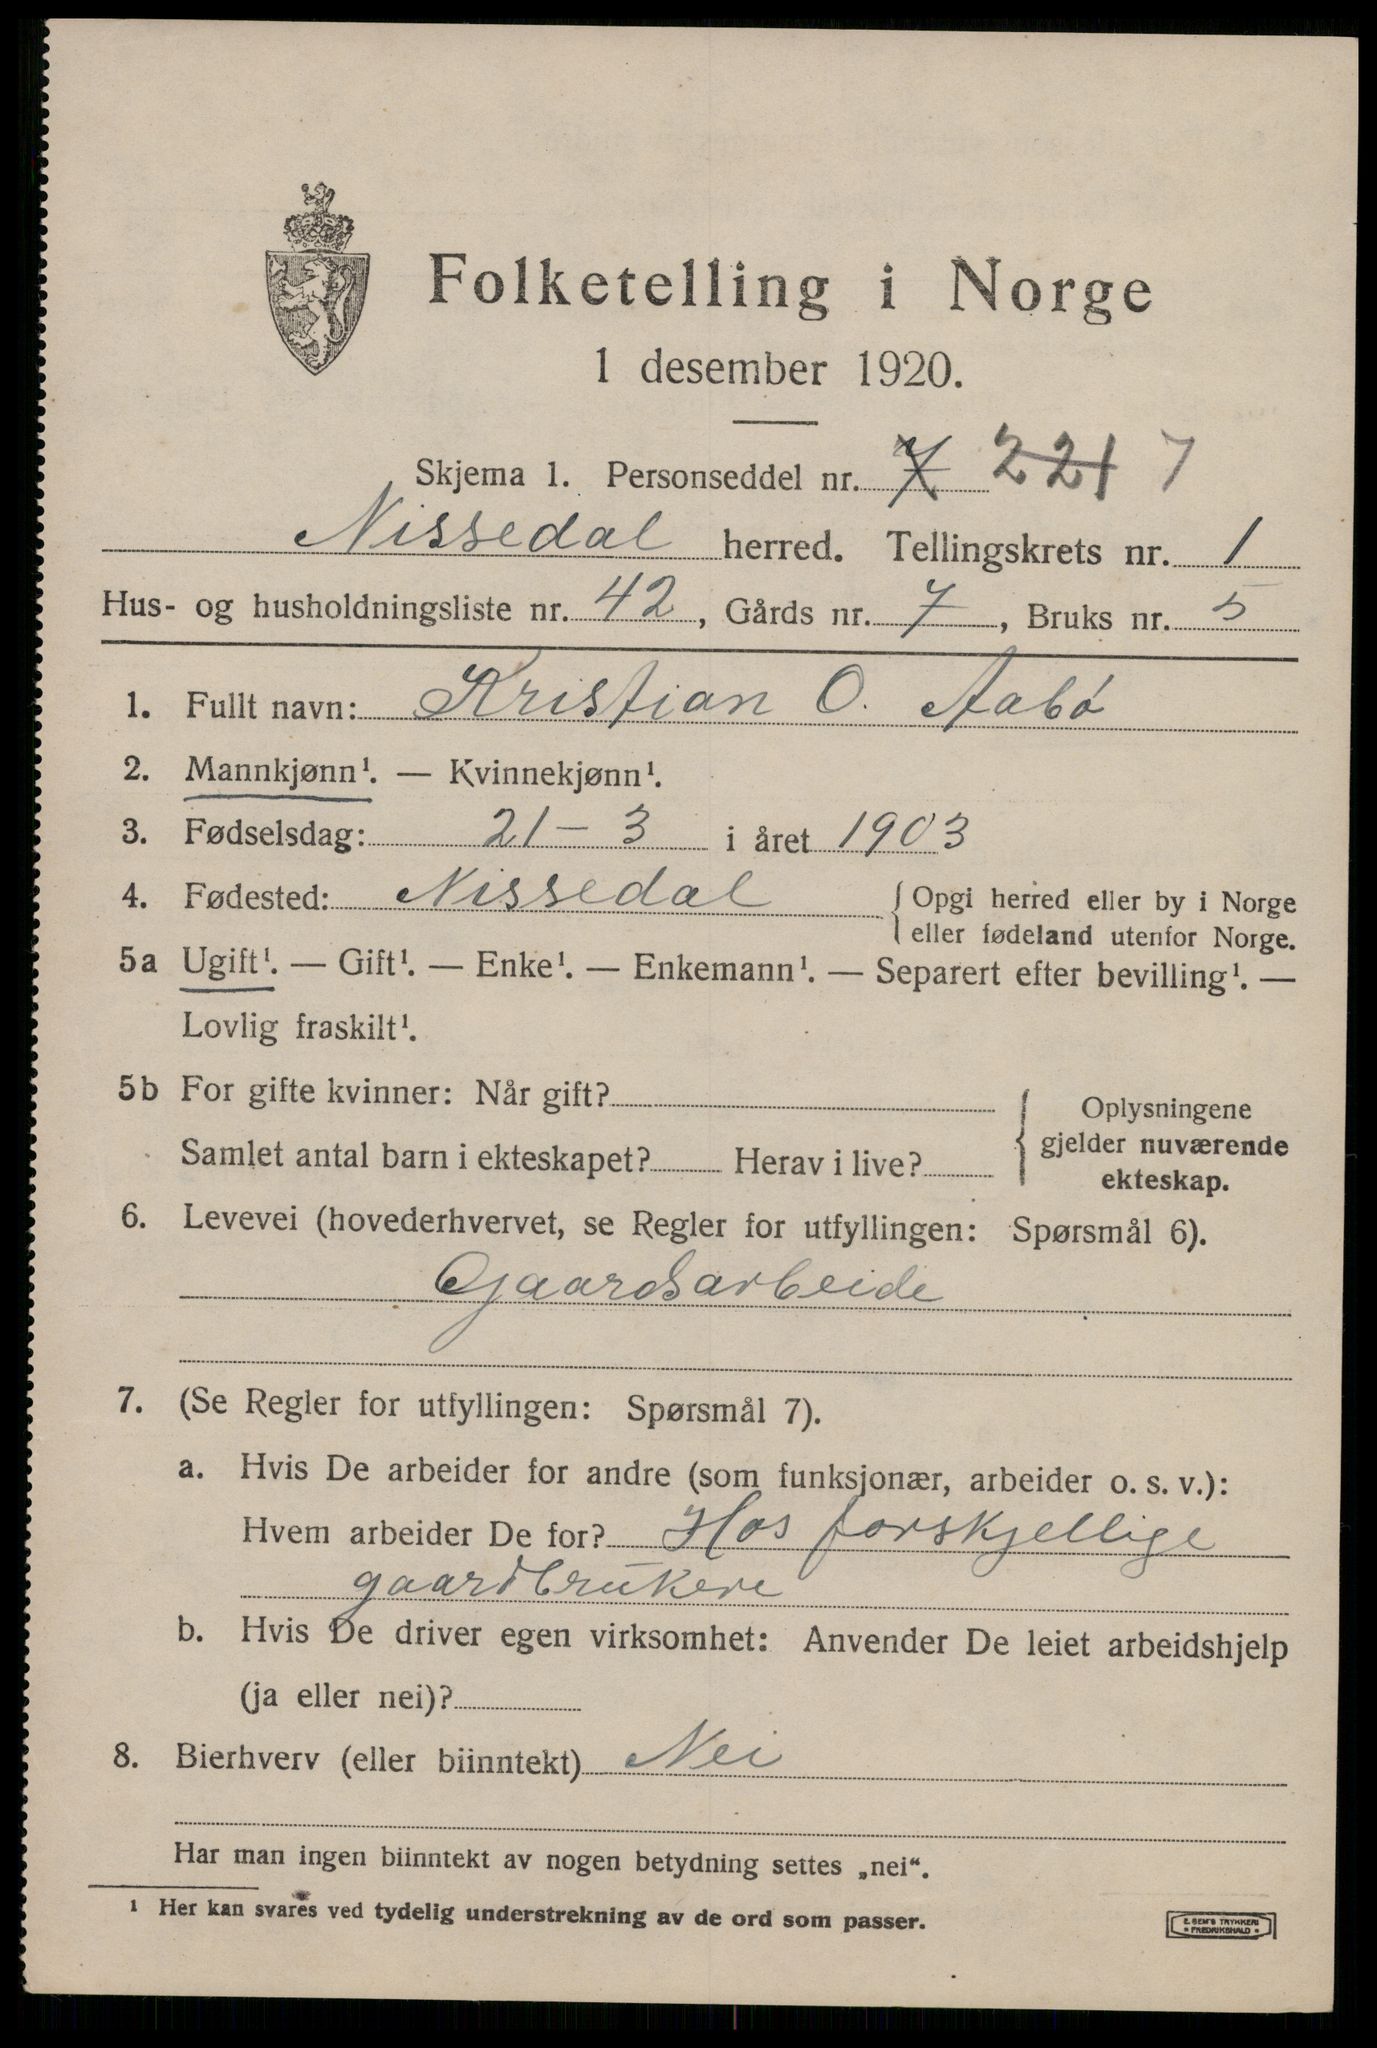 Folketelling i Norge
1 desember 1920.
Skjema 1. Personseddel nr. 7 221 7
Nissedal herred. Tellingskrets nr. 1
Hus- og husholdningsliste nr. 42, Gårds nr. 7, Bruks nr. 5
1. Fullt navn: Kristian O. Aabø
2. Mannkjønn¹. — Kvinnekjønn¹.
3. Fødselsdag: 21 - 3 i året 1903
4. Fødested: Nissedal { Opgi herred eller by i Norge
eller fødeland utenfor Norge.
5a Ugift¹. — Gift¹. — Enke¹. — Enkemann¹. — Separert efter bevilling¹. —
Lovlig fraskilt¹.
5b For gifte kvinner: Når gift?
Samlet antal barn i ekteskapet? Herav i live?
Oplysningene
gjelder nuværende
ekteskap.
6. Levevei (hovederhvervet, se Regler for utfyllingen: Spørsmål 6).
Gaardsarbeide
7. (Se Regler for utfyllingen: Spørsmål 7).
a. Hvis De arbeider for andre (som funksjonær, arbeider o. s. v.):
Hvem arbeider De for? Hos forskjellige
gaardbrukere
b. Hvis De driver egen virksomhet: Anvender De leiet arbeidshjelp
(ja eller nei)?
8. Bierhverv (eller biinntekt) Nei
Har man ingen biinntekt av nogen betydning settes „nei“.
¹ Her kan svares ved tydelig understrekning av de ord som passer.
E. SEM'S TRYKKERI
• FREDRIKSHALD •